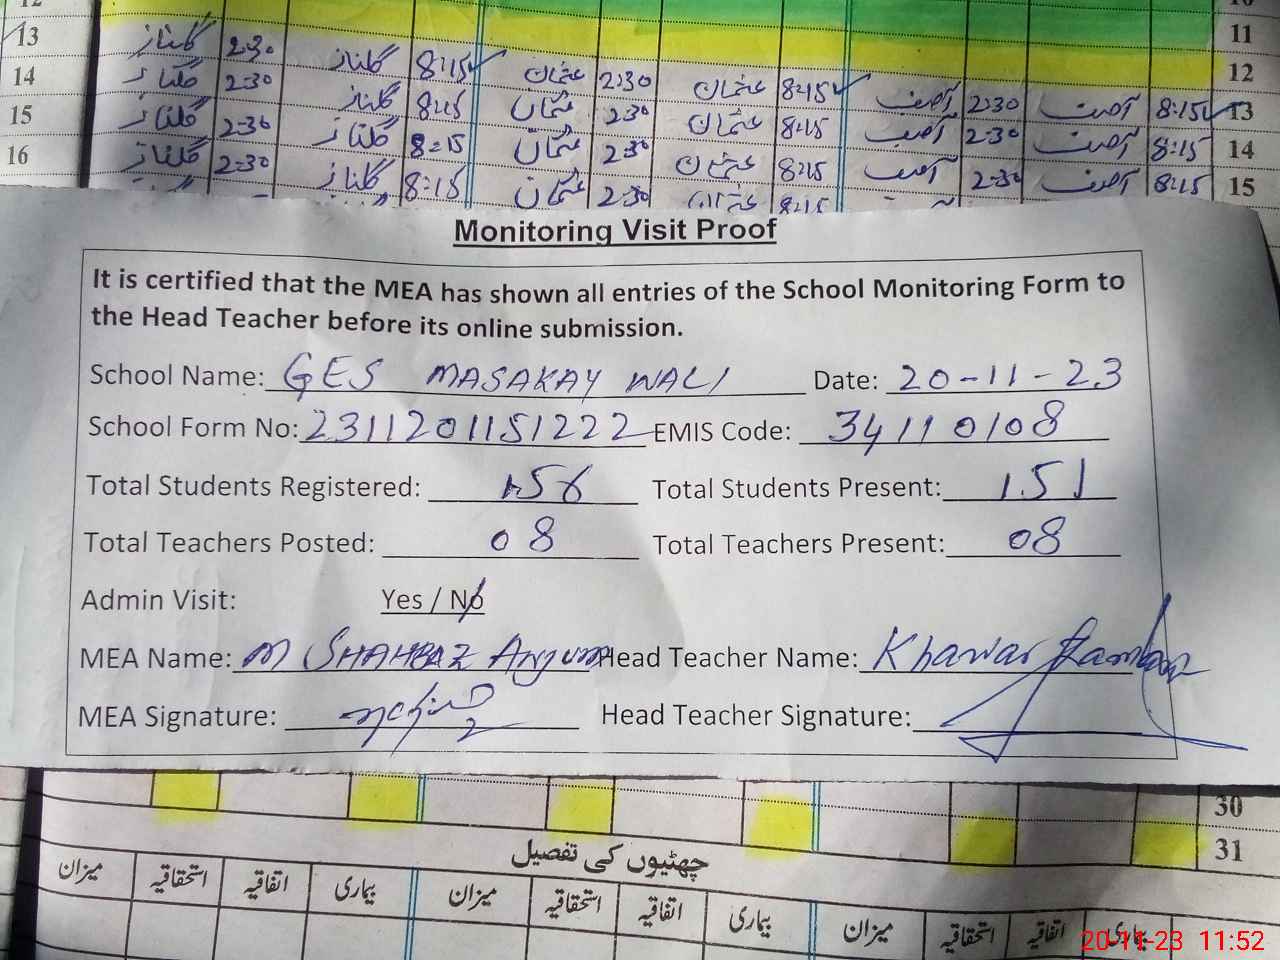 12 10
13 گلناز 2:30 گلناز 8:15 عثمان 2:30 عثمان 8:15 آصف 2:30 آصف 8:15 11
14 گلناز 2:30 گلناز 8:15 عثمان 2:30 عثمان 8:15 آصف 2:30 آصف 8:15 12
15 گلناز 2:30 گلناز 8:15 عثمان 2:30 عثمان 8:15 آصف 2:30 آصف 8:15 13
16 گلناز 2:30 گلناز 8:15 عثمان 2:30 عثمان 8:15 14
15
Monitoring Visit Proof
It is certified that the MEA has shown all entries of the School Monitoring Form to
the Head Teacher before its online submission.
School Name: GES MASAKAY WALI Date: 20-11-23
School Form No: 2311201151222 EMIS Code: 34110108
Total Students Registered: 156 Total Students Present: 151
Total Teachers Posted: 08 Total Teachers Present: 08
Admin Visit: Yes / No
MEA Name: M SHAHBAZ Anjum Head Teacher Name: Khawar
MEA Signature: Head Teacher Signature:
30
31
چھٹیوں کی تفصیل
میزان استحقاقیہ اتفاقیہ بیماری میزان استحقاقیہ اتفاقیہ بیماری میزان استحقاقیہ اتفاقیہ بیماری
20-11-23 11:52